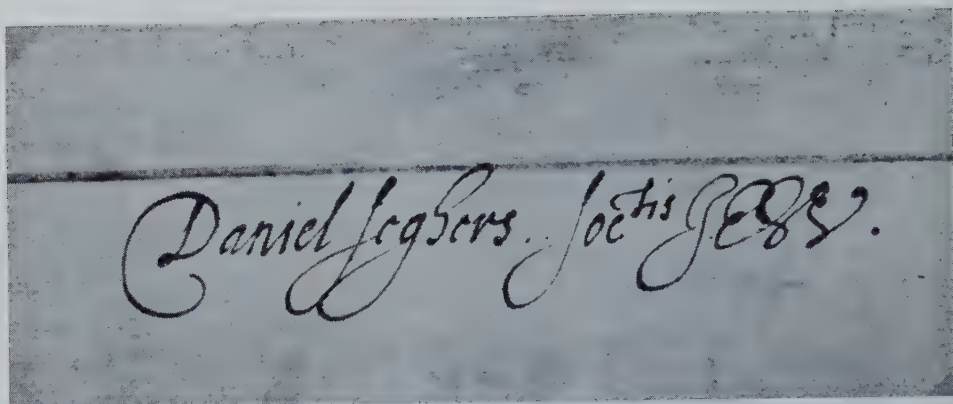 Daniel Seghers. Soctis JESV.